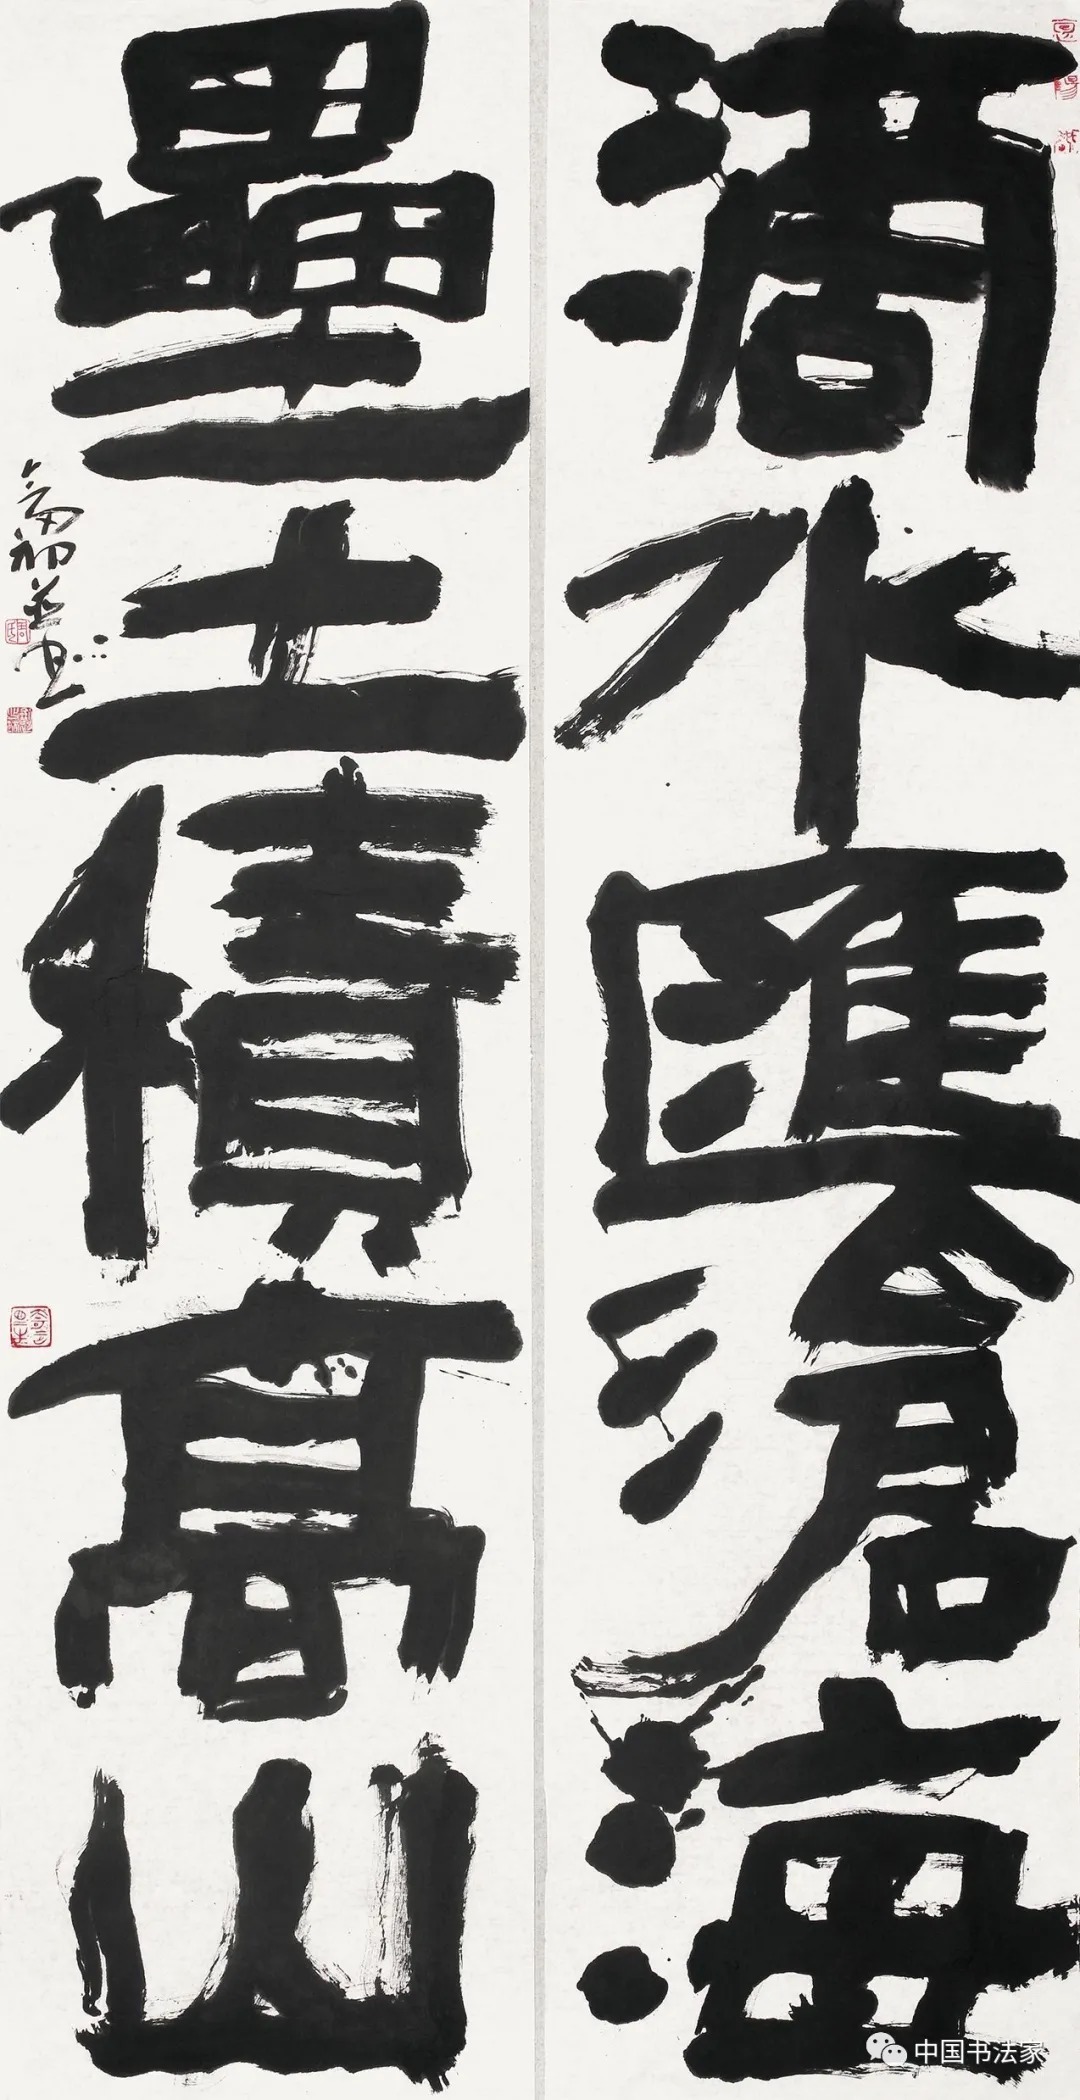 滴水匯滄海
壘土積高山
中国书法家